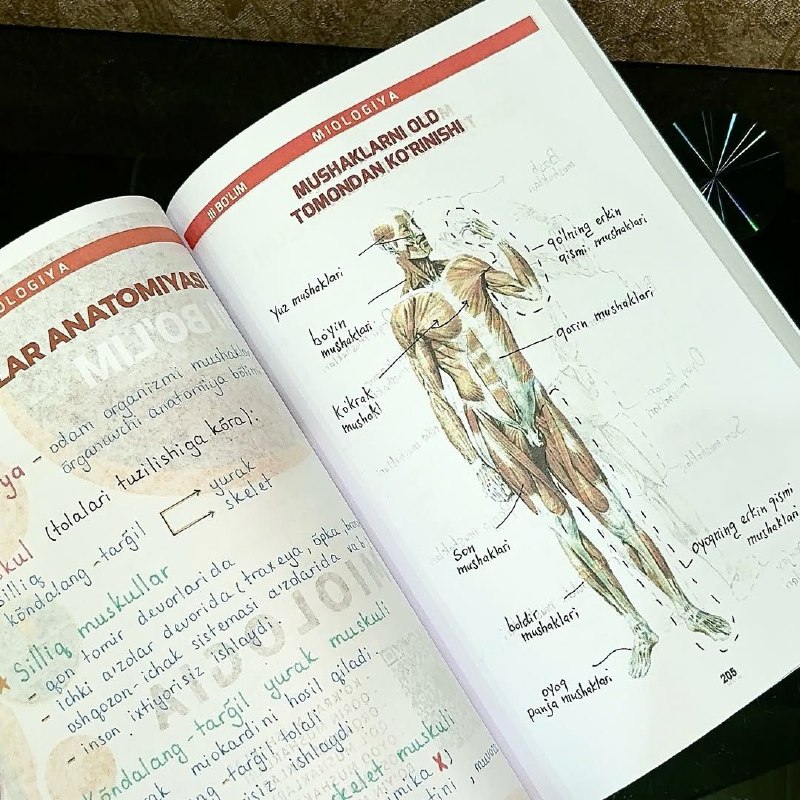 OLOGIYA
LAR ANATOMIYASI
ya - odam organizmi mushaklari
organuvchi anatomiya bo'limi
skul (tolalari tuzilishiga ko'ra):
silliq
ko'ndalang - targ'il
yurak
skelet
Silliq muskullar
- qon tomir devorlarida
- ichki a'zolar devorida (traxeya, o'pka,
oshqozon-ichak sistemasi a'zolarida
- inson ixtiyorisiz ishlaydi.
Ko'ndalang - targ'il yurak muskuli
miokardini hosil qiladi.
targ'il tolali
ishlaydi.
skelet muskuli
III BO'LIM
MIOLOGIYA
MUSHAKLARNI OLD
TOMONDAN KO'RINISHI
Yuz mushaklari
bo'yin
mushaklari
Ko'krak
mushakl
qo'lning erkin
qismi mushaklari
qorin mushaklari
Son
mushaklari
oyoqning erkin qismi
mushaklari
boldir
mushaklari
oyoq
panja mushaklari
205